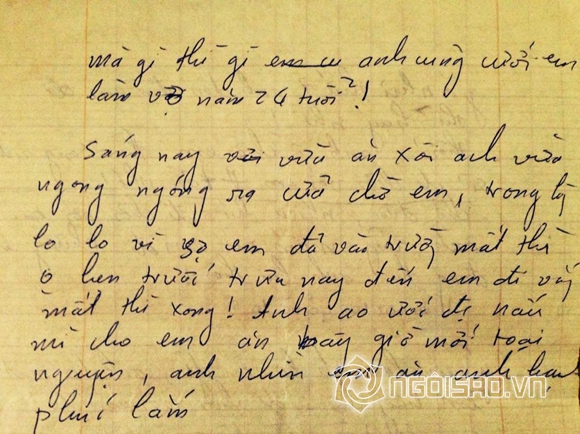 mà gì thì gì em anh cũng cưới em
làm vợ năm 24 tuổi!
Sáng nay vừa ăn xôi anh vừa
ngong ngóng ra cửa chờ em, trong
lo lo vì sợ em đã vào trường mất thì
trưa nay đến em đi vắng
mất thì xong! Anh ao ước đc nấu
mì cho em ăn bây giờ mới toại
nguyện, anh nhìn em ăn anh hạnh
phúc lắm
NGÔISAO.VN